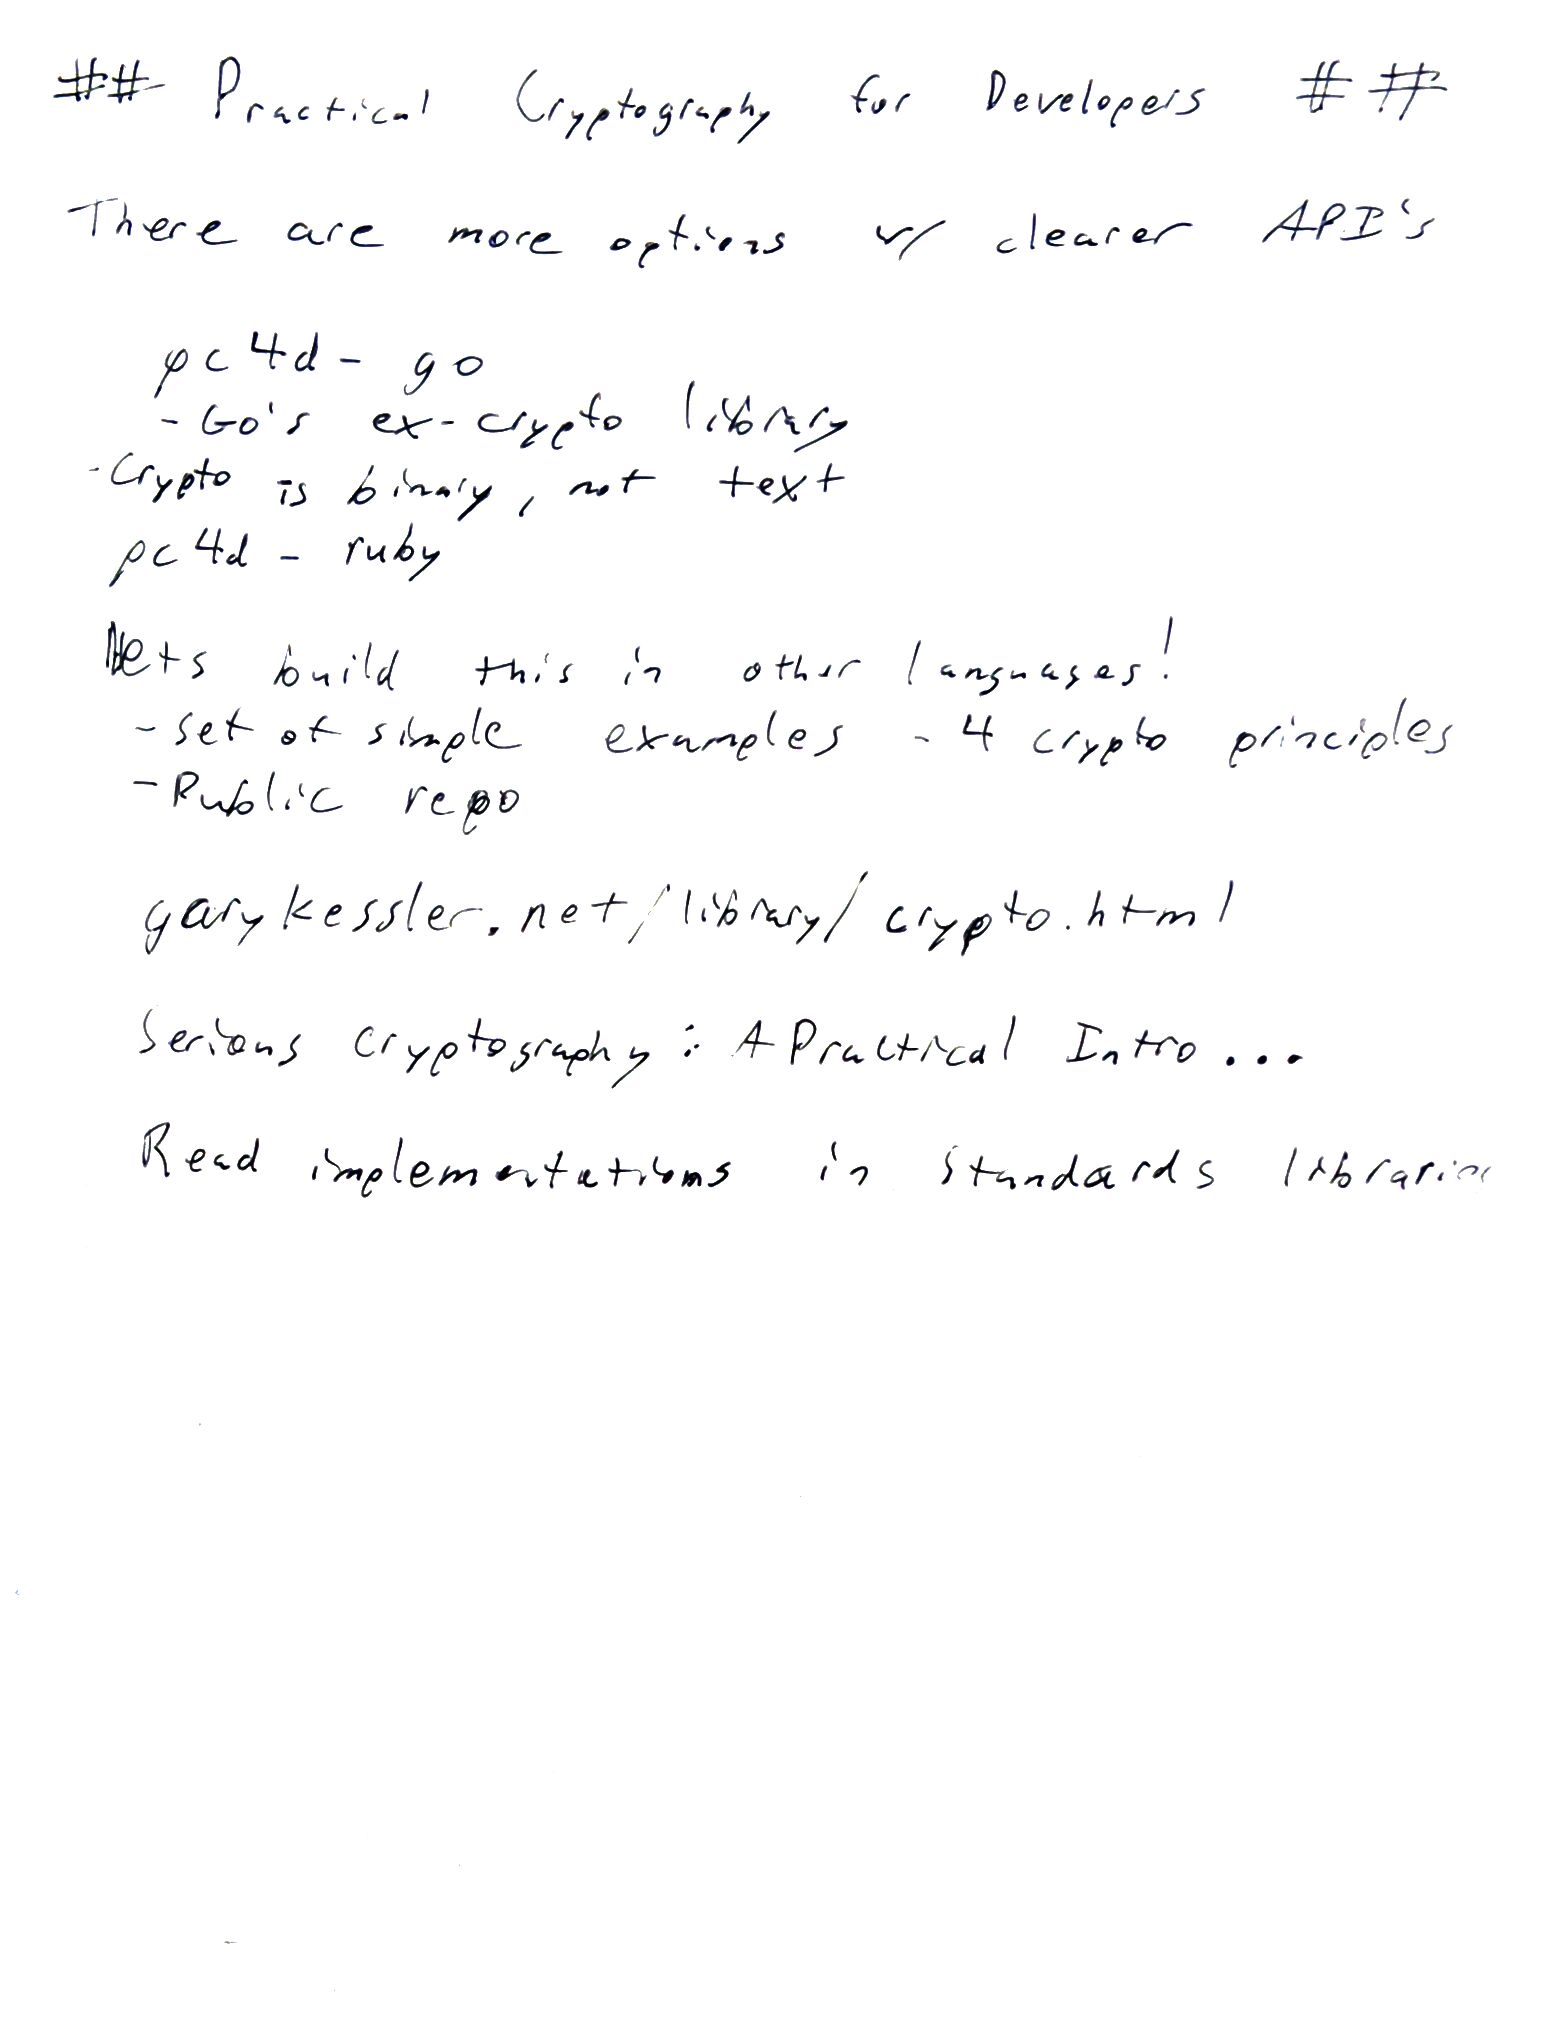 ## Practical Cryptography for Developers ##
There are more options w/ clearer API's
pc4d - go
- Go's ex-crypto library
- Crypto is binary, not text
pc4d - ruby
Lets build this in other languages!
- set of simple examples - 4 crypto principles
- Public repo
garykessler.net/library/crypto.html
Serious Cryptography: A Practical Intro...
Read implementations in standards libraries